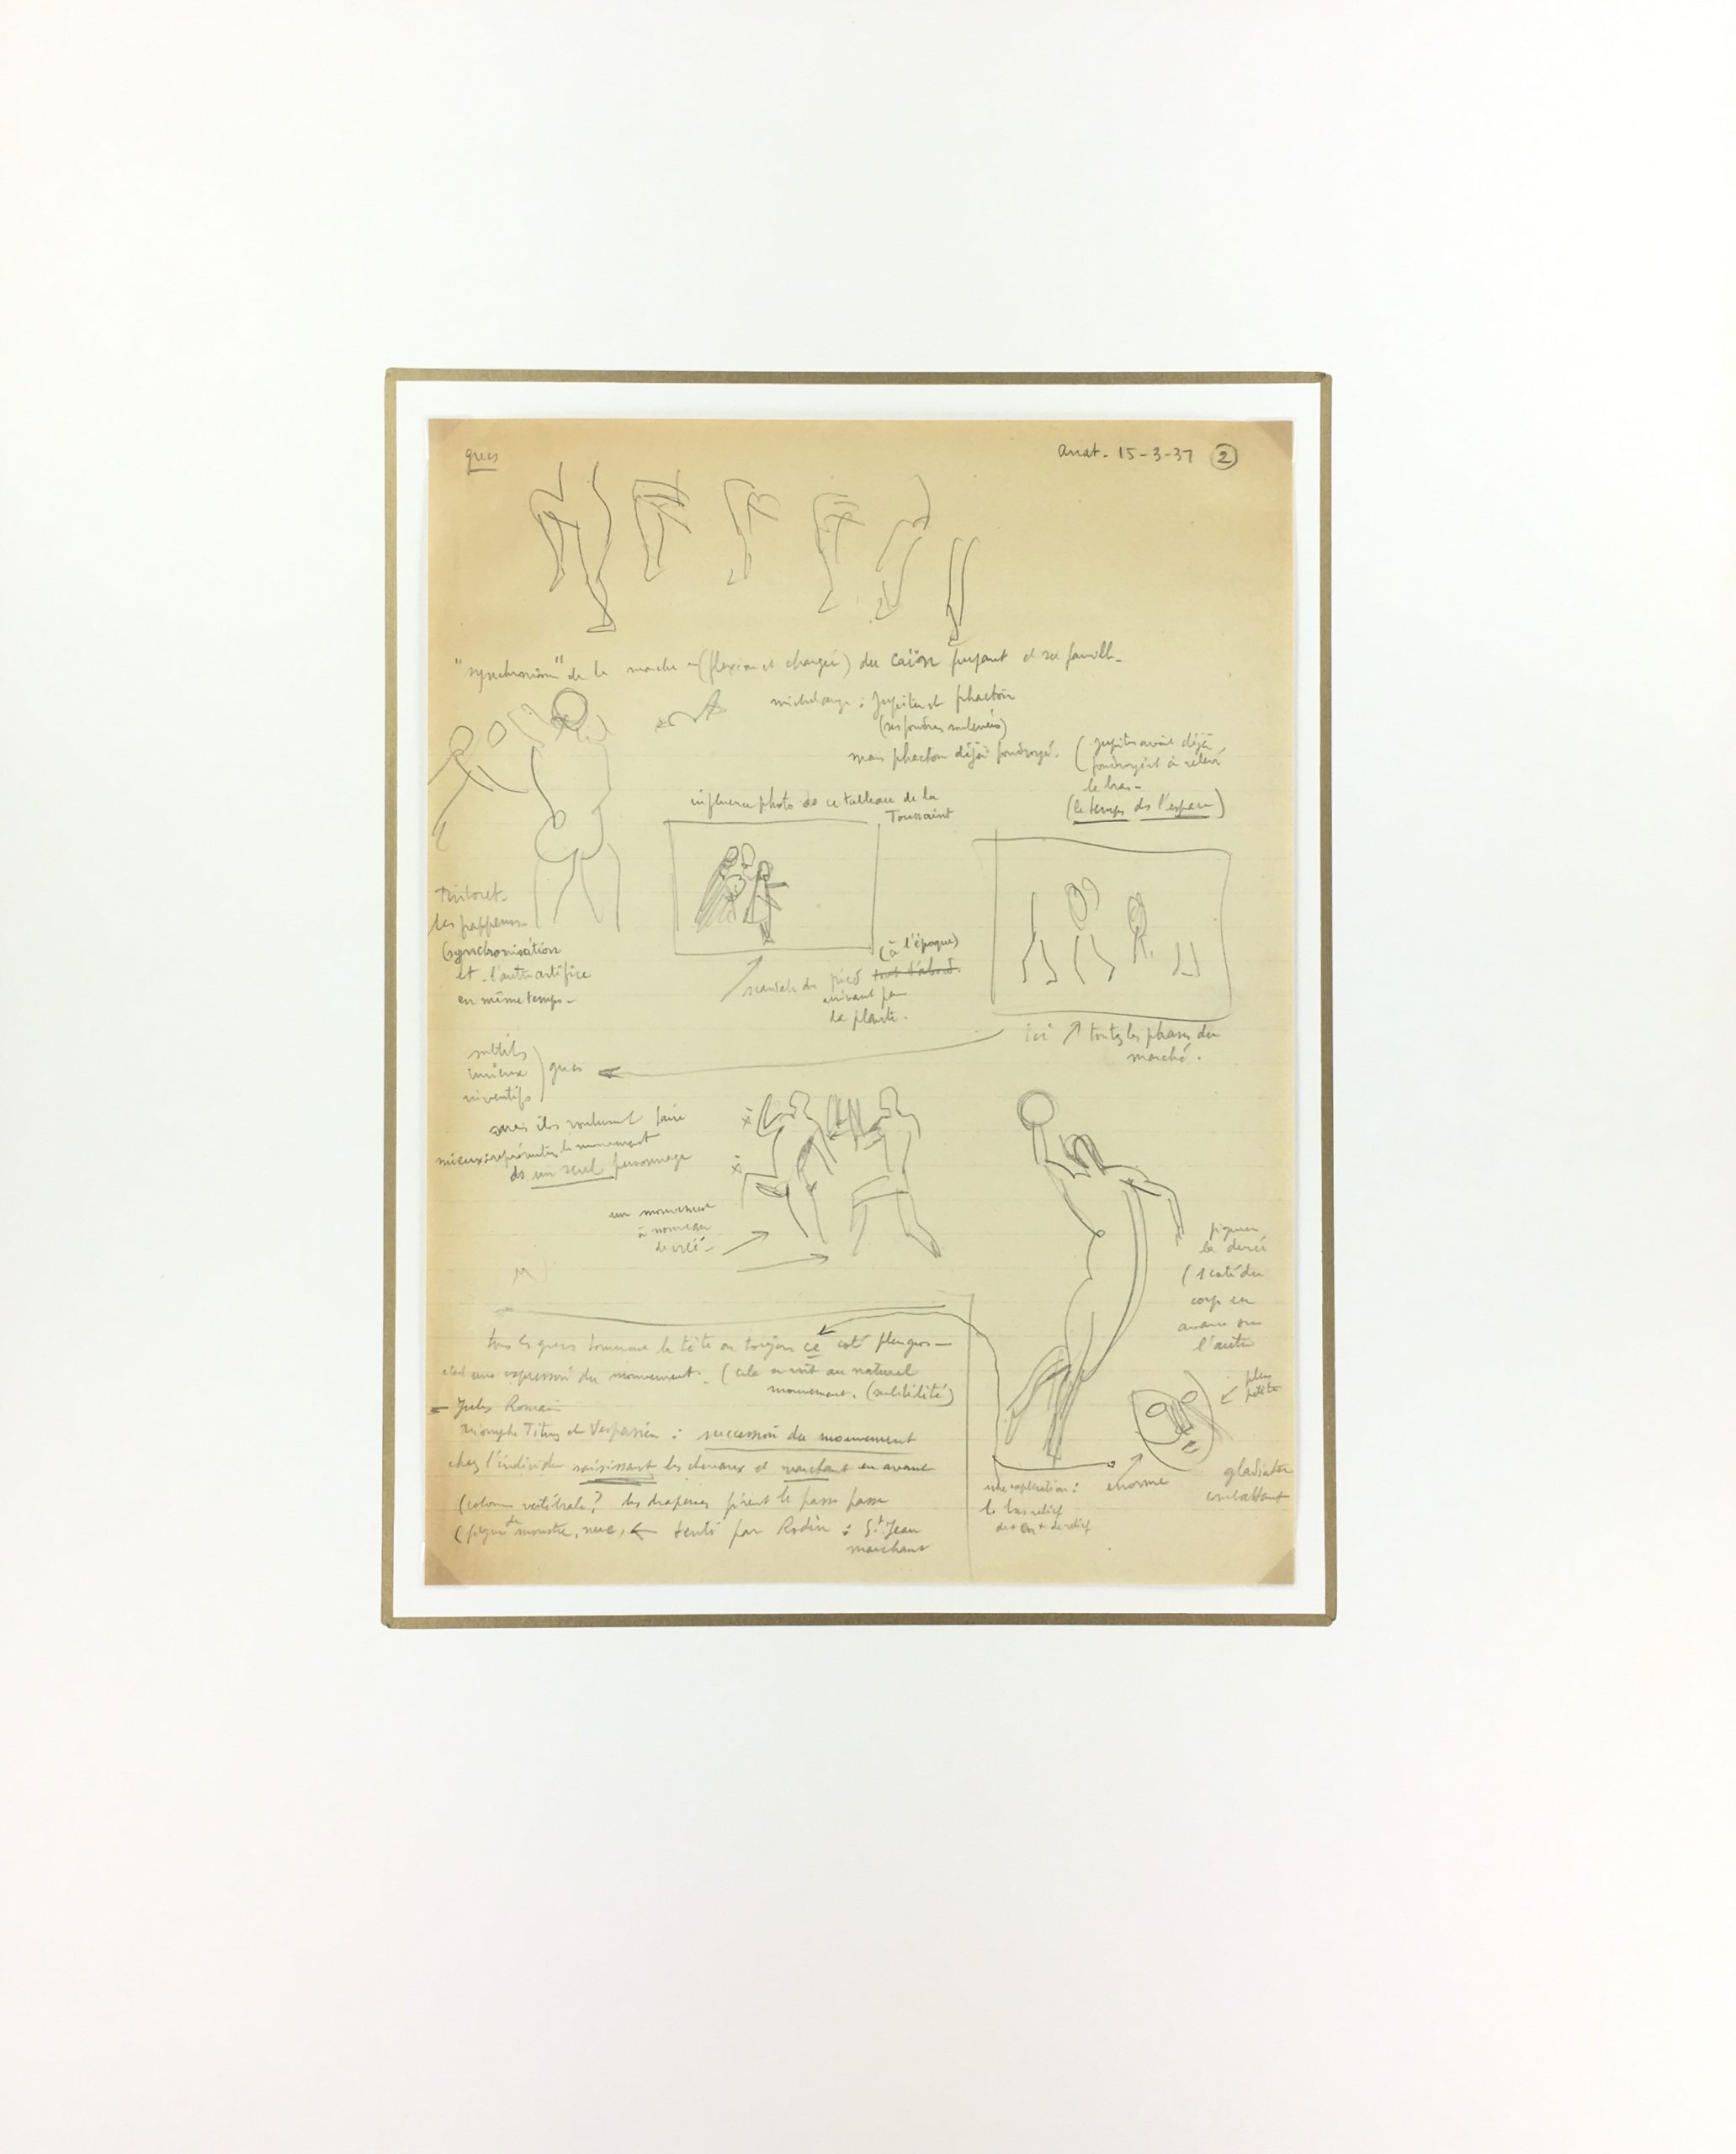 grecs
Anat. 15-3-37 2
"synchronism" de la marche (flexion et charge) du Caïn fuyant et sa famill
michelange : Jupiter et phaeton
(ses foudres soulevées)
mais phaeton déjà foudroyé.
(Jupiter avait déjà
foudroyé et a relevé
le bras -
(le temps ds l'espace)
influence photo de ce tableau de la
Toussaint
Tintoret.
les frappeurs
(synchronisation
et l'autre artifice
en même temps -
(à l'époque)
scandale du pied tout d'abord.
arrivant par
la plante.
ici toutes les phases du
marché.
subtils
curieux
inventifs
grecs
mais ils voulurent faire
mieux : représenter le mouvement
ds un seul personnage
un mouvement
à nouveau
figurer
la durée
(1 coté du
corps en
avance sur
l'autre
tous les grecs tournant la tête on toujours ce coté plus gros -
c'est une expression du mouvement. (cela se voit au naturel
mouvement. (subtilité)
plus
petite
- Jules Romain
Triomphe Titus et Vespasien : succession du mouvement
chez l'individu saisissant les chevaux et marchant en avant
(colonne vertébrale ? les draperies firent le passe passe
(figure de monstre, nue, ← tenté par Rodin : St Jean
marchant
une explication :
le bas relief
de + en + de relief
énorme
gladiateur
combattant